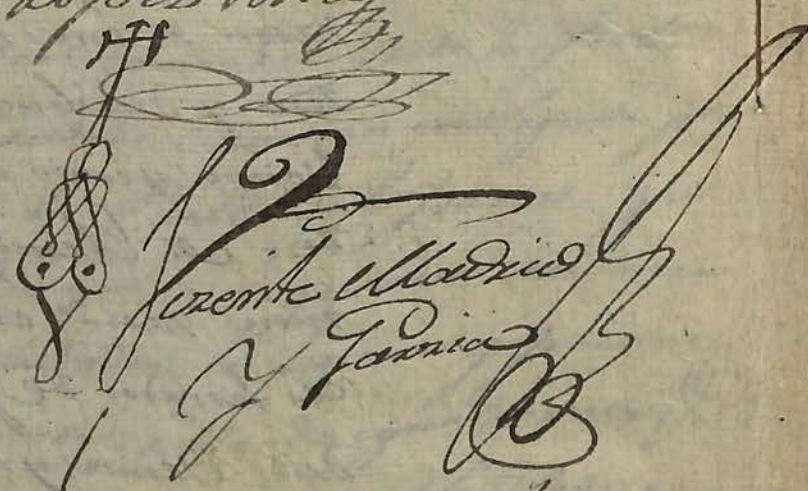 Vizente Madrid
Y Garzia